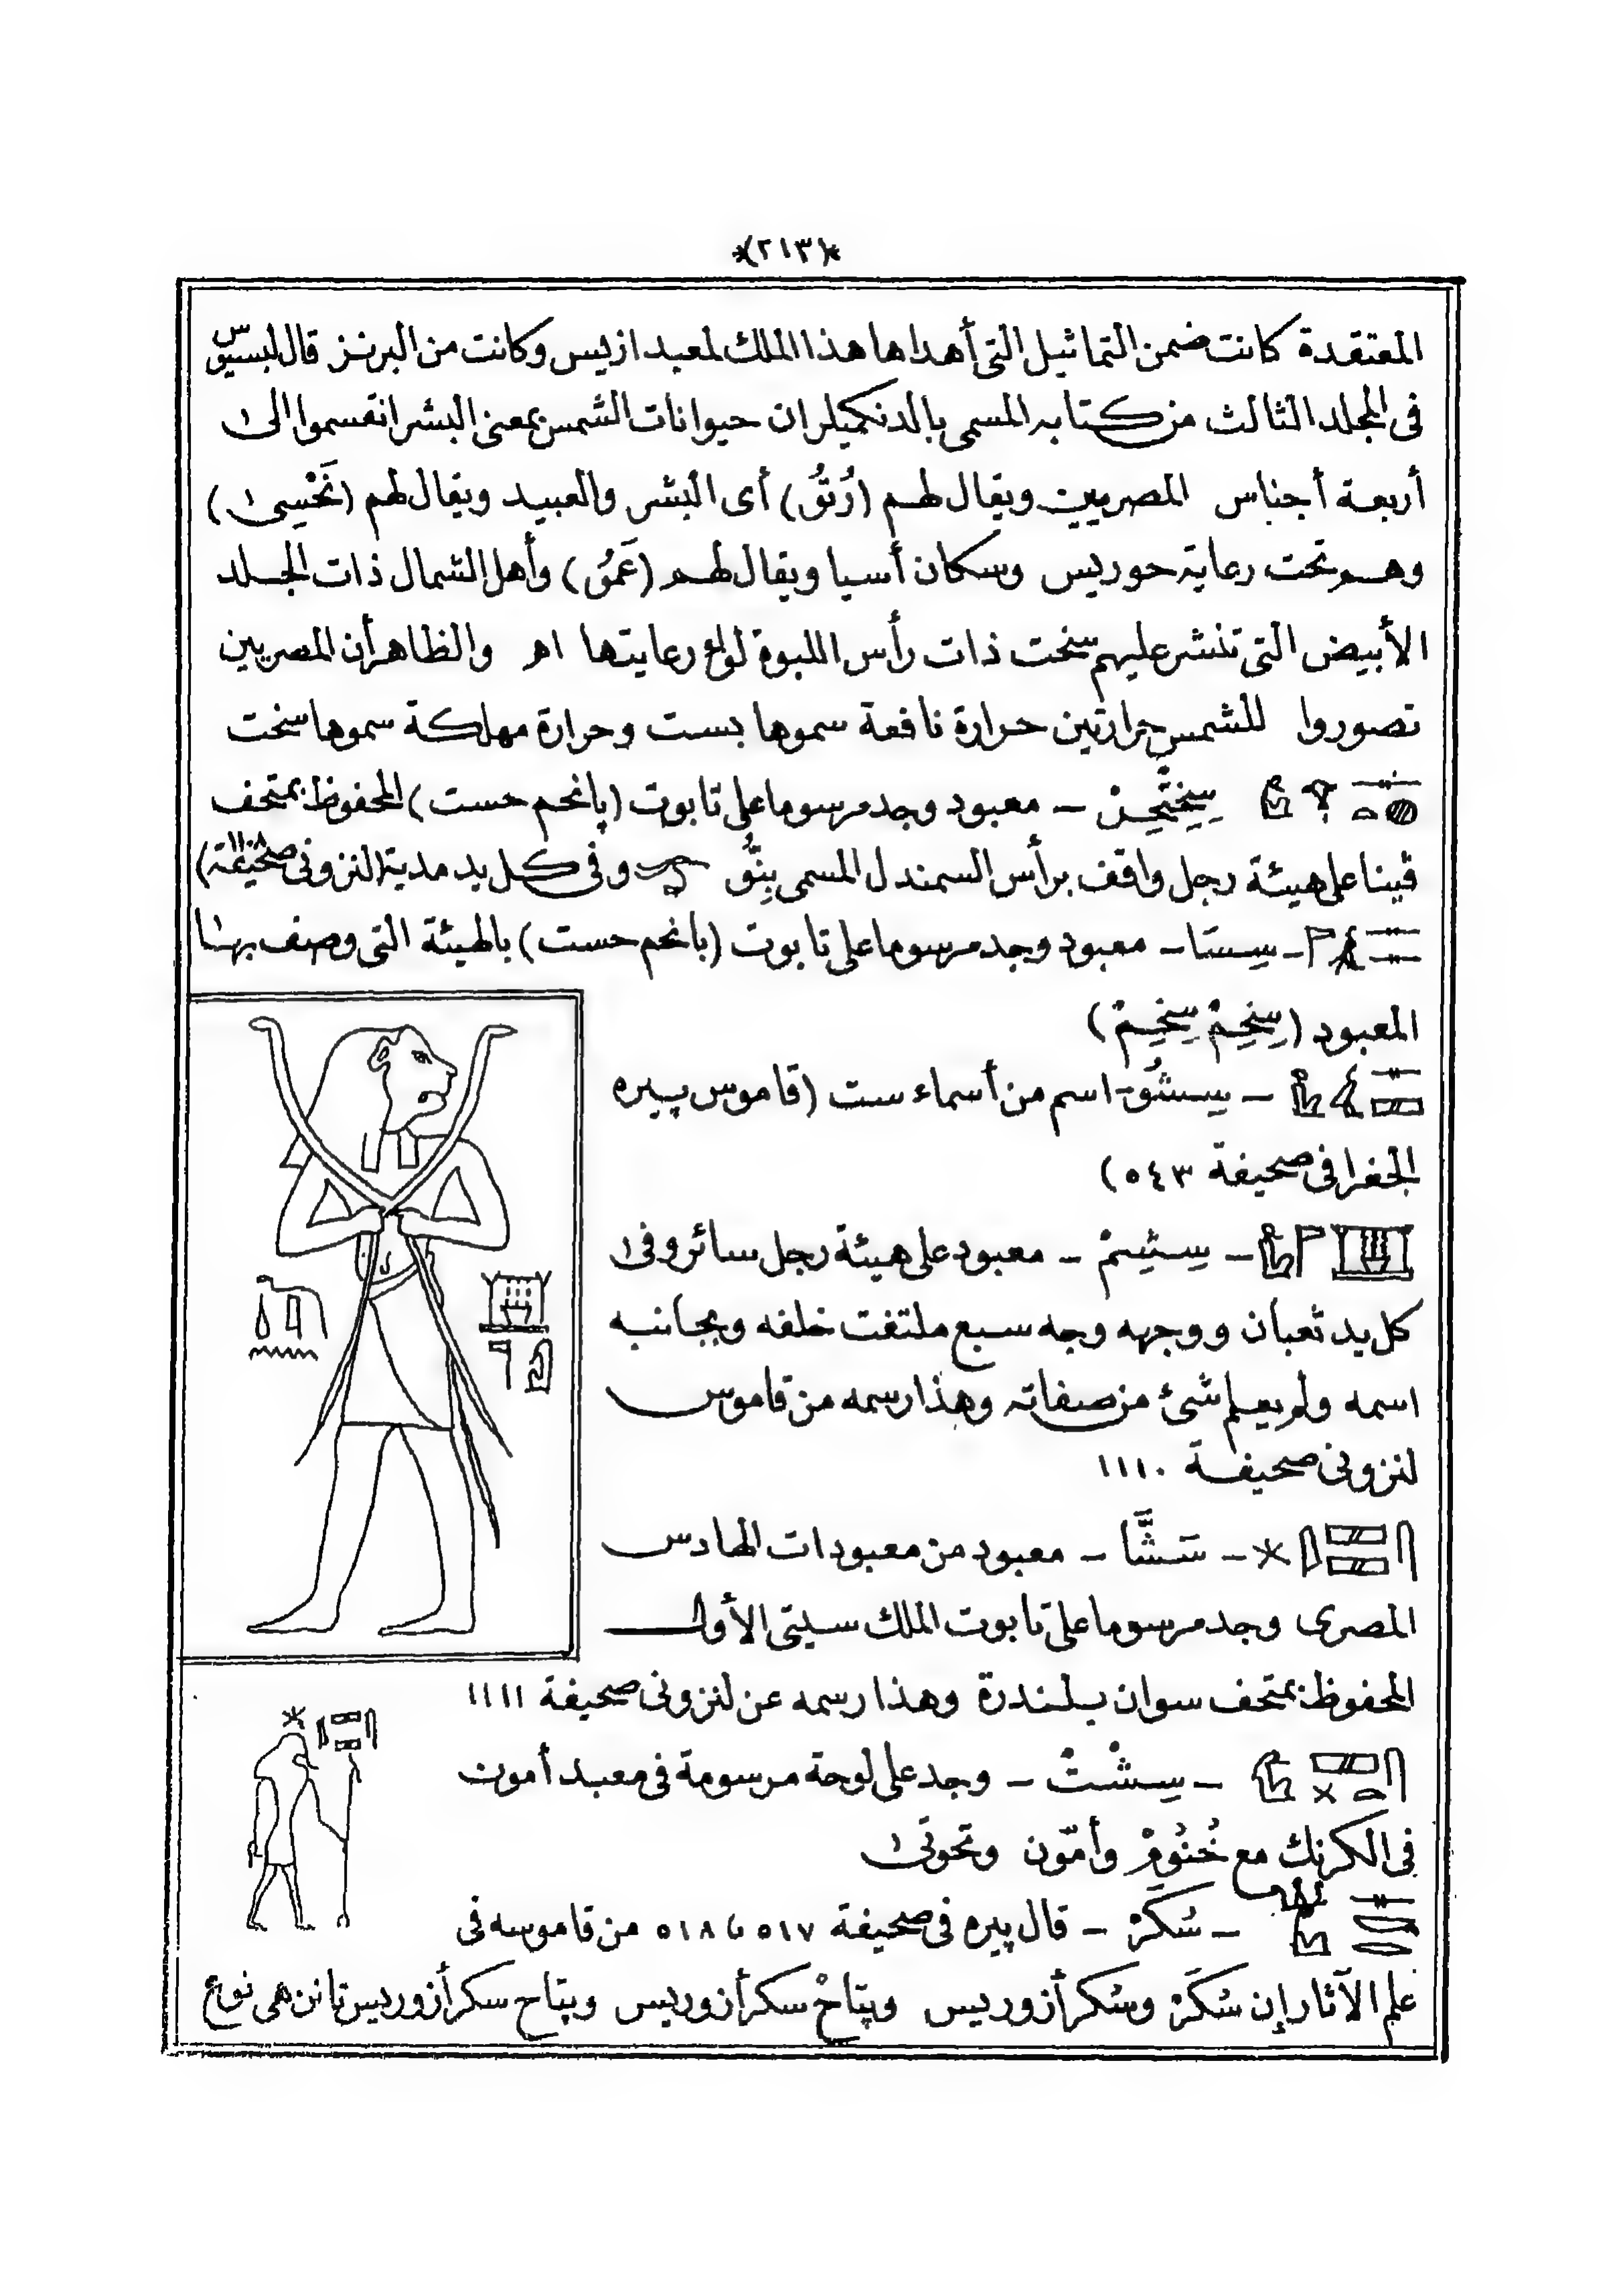 *(٢١٣)*
المعتقدة كانت ضمن التماثيل التى أهداها هذا الملك لمعبد ازيس وكانت من البرنز قال لبسيوس
فى المجلد الثالث من كتابه المسمى بالدنكميلر ان حيوانات الشمس بمعنى البشر انقسموا الى
أربعة أجناس المصريين ويقال لهم (رُتُو) أى البشر والعبيد ويقال لهم (نَحْسِى)
وهم تحت رعاية حوريس وسكان أسيا ويقال لهم (عَمُو) وأهل الشمال ذات الجلد
الأبيض التى تنشر عليهم سخت ذات رأس اللبوة لواء رعايتها اه والظاهر أن المصريين
تصوروا للشمس حرارتين حرارة نافعة سموها بست وحرارة مهلكة سموها سخت
معبود وجد مرسوما على تابوت (پانحم حست) المحفوظ بمتحف
ڤينا على هيئة رجل واقف برأس السمندل المسمى بِنُّو وفى كل يد مدية (لنزونى صحيفة)
سِسَا - معبود وجد مرسوما على تابوت (بانحم حست) بالهيئة التى وصف بها
المعبود (سِخِمْ سِخِمْ)
سِسشُو - اسم من أسماء ست (قاموس پيره
الجغرافى صحيفة ٥٤٣)
سِشِمْ - معبود على هيئة رجل سائر وفى
كل يد ثعبان ووجهه وجه سبع ملتفت خلفه وبجانبه
اسمه ولم يعلم شئ من صفاته وهذا رسمه من قاموس
لنزونى صحيفة ١١١٠
سَشَّا - معبود من معبودات الهادس
المصرى وجد مرسوما على تابوت الملك سيتى الأول
المحفوظ بمتحف سوان بلندرة وهذا رسمه عن لنزونى صحيفة ١١١١
سِشْتْ - وجد على لوحة مرسومة فى معبد أمون
فى الكرنك مع خُنُومْ وأمّون وتحوتى
سُكَرْ - قال پيره فى صحيفة ٥١٧ ٥١٨ من قاموسه فى
علم الآثار إن سُكَرْ وسُكر أزوريس وپتاحْ سكر أزوريس وپتاح سكر أزوريس تانن هى نوع